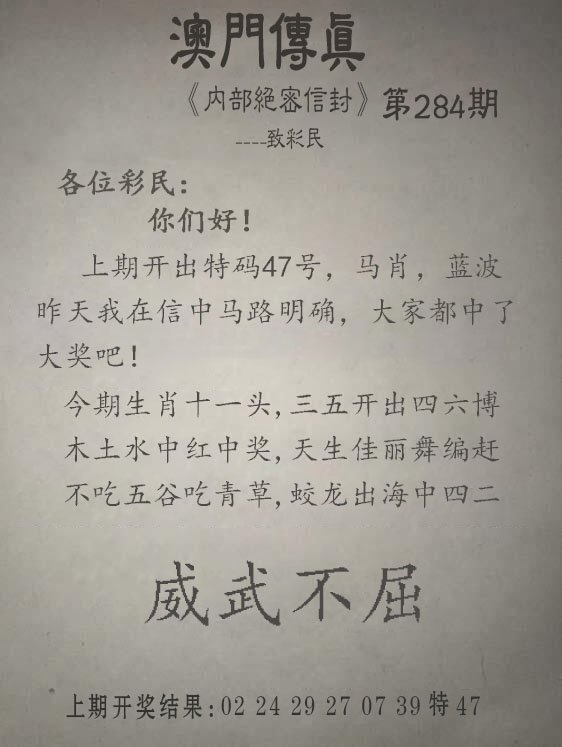 澳門傳真
《内部絕密信封》第284期
----致彩民
各位彩民：
你们好！
上期开出特码47号，马肖，蓝波
昨天我在信中马路明确，大家都中了
大奖吧！
今期生肖十一头,三五开出四六博
木土水中红中奖,天生佳丽舞编赶
不吃五谷吃青草,蛟龙出海中四二
威武不屈
上期开奖结果:02 24 29 27 07 39 特 47